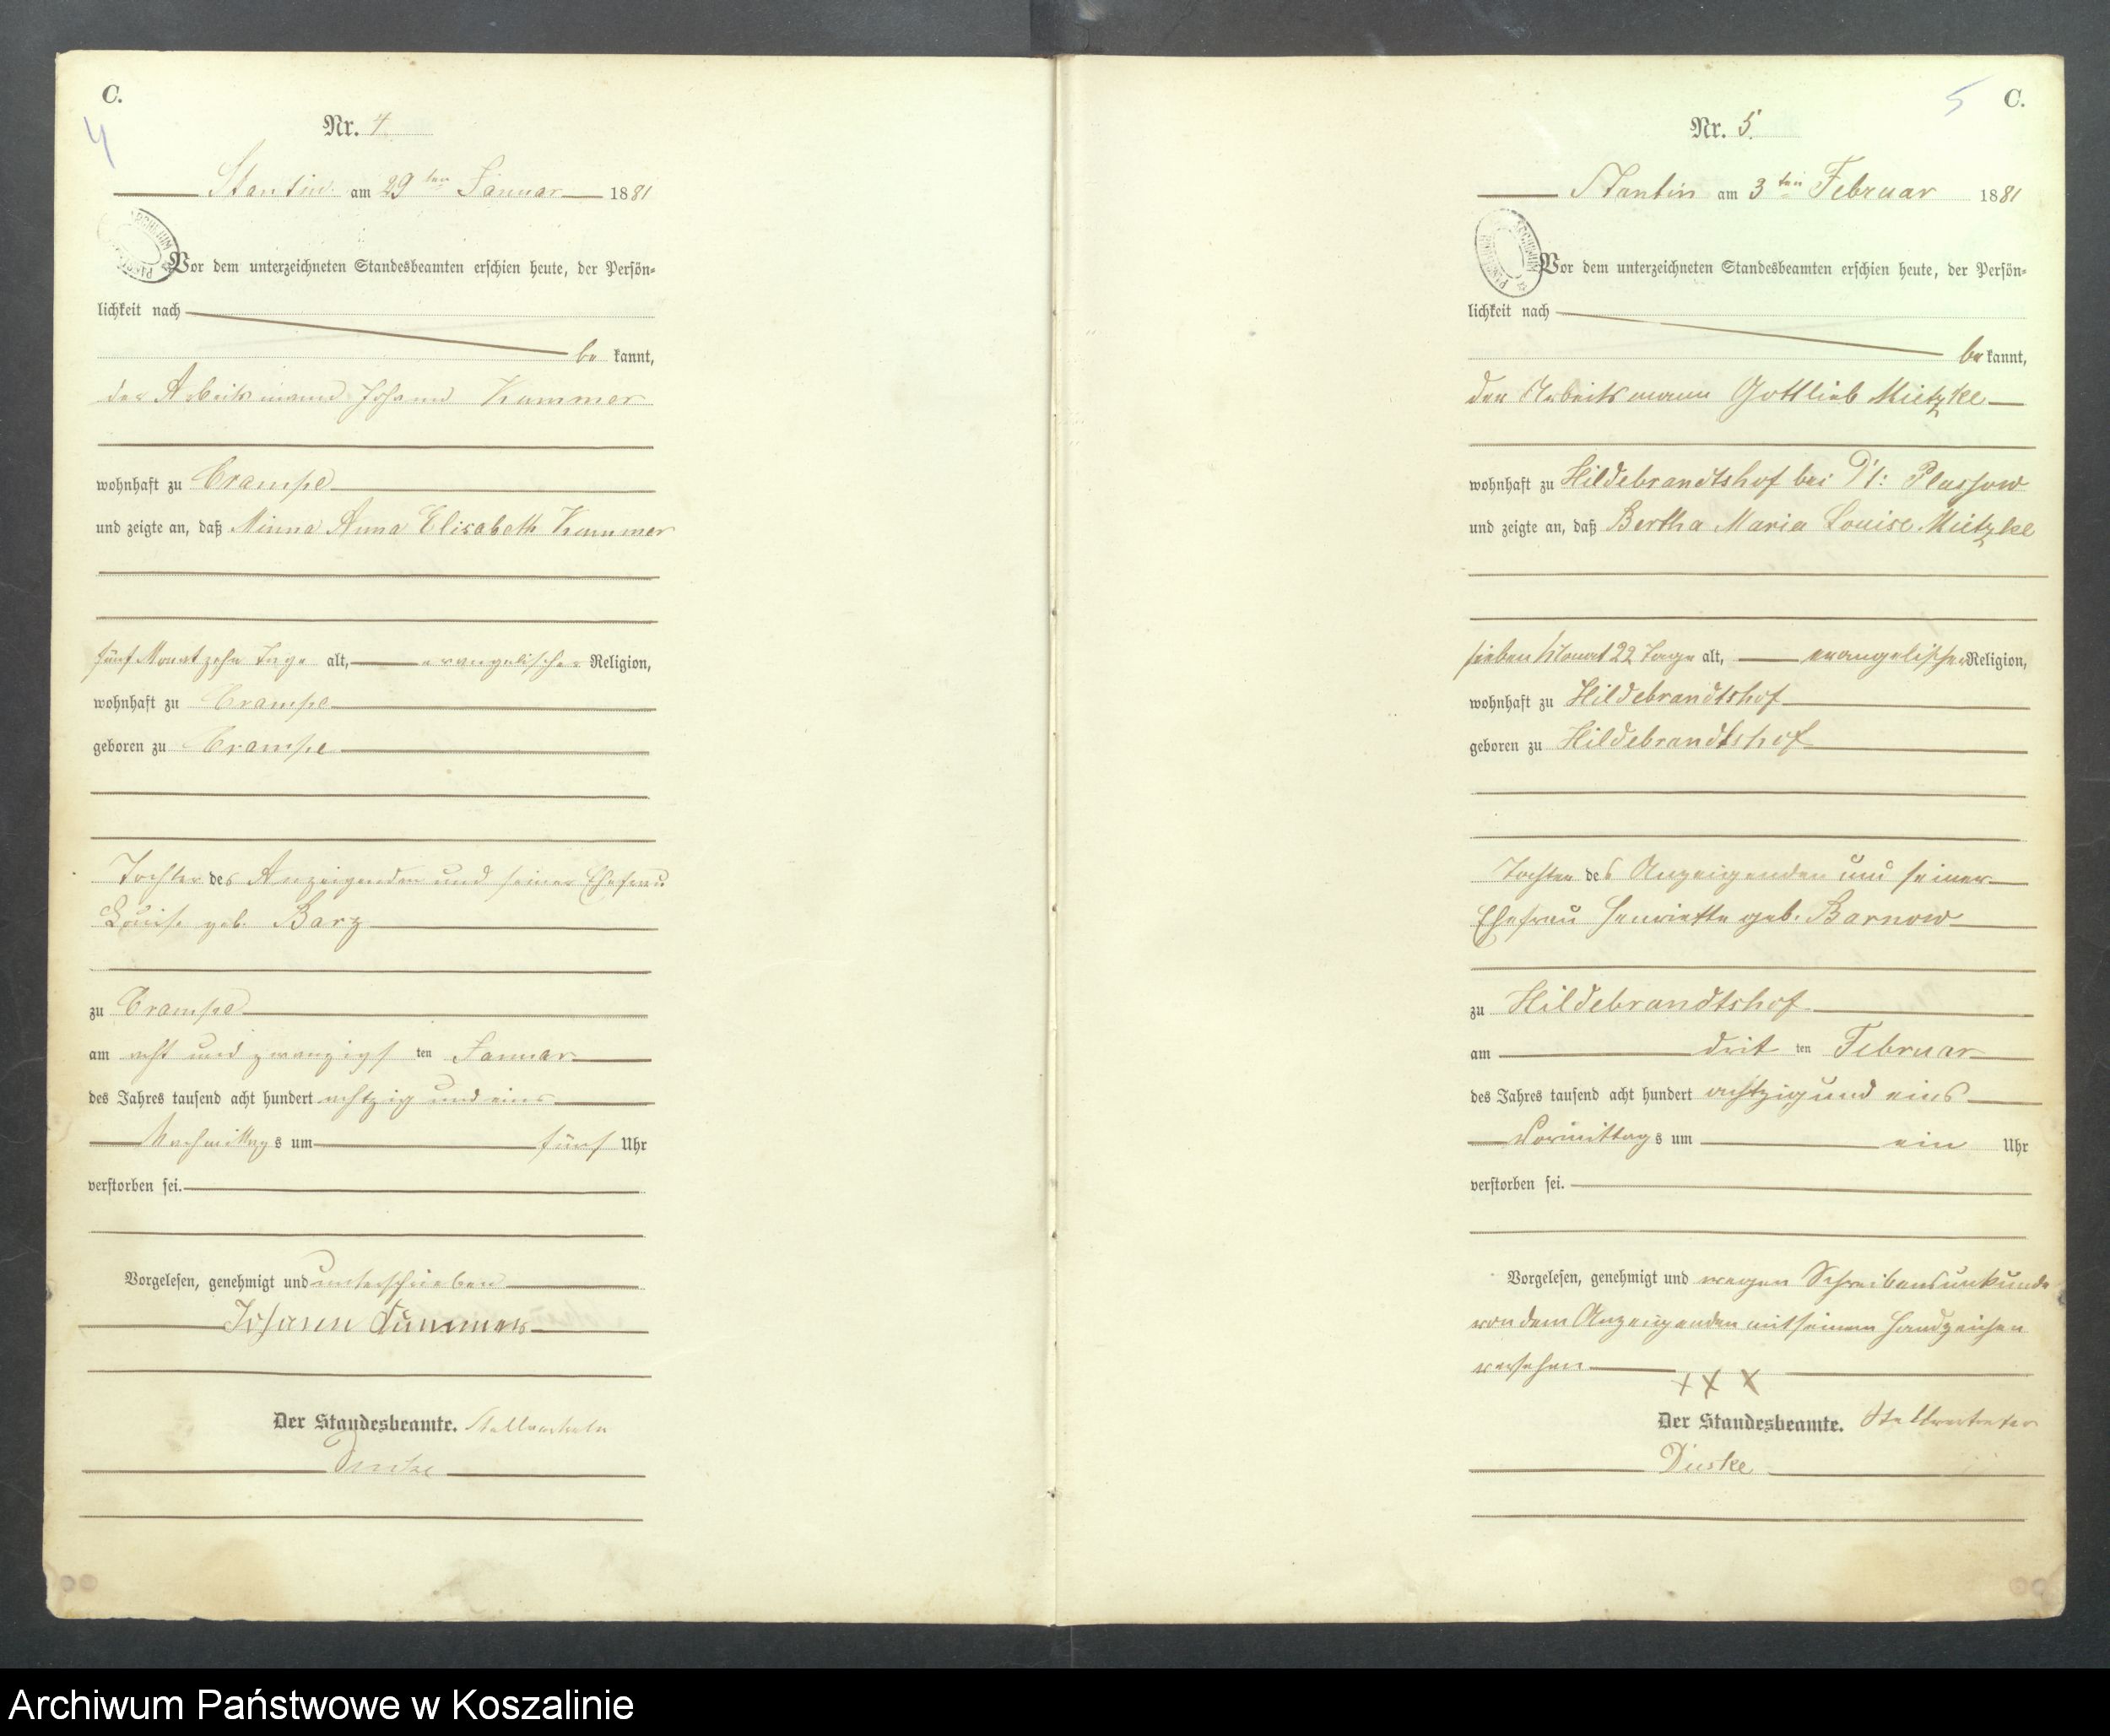 C.
4
Nr. 4.
Stantin am 29ten Januar 1881
Vor dem unterzeichneten Standesbeamten erschien heute, der Persön-
lichkeit nach
be kannt,
der Arbeitsmann Johann Kummer
wohnhaft zu Crampe
und zeigte an, daß Minna Anna Elisabeth Kummer
fünf Monat zehn Tage alt, evangelischer Religion,
wohnhaft zu Crampe
geboren zu Crampe
Tochter des Anzeigenden und seiner Ehefrau
Louise geb. Barz
zu Crampe
am acht und zwanzigsten Januar
des Jahres tausend acht hundert achtzig und eins
Nachmittags um fünf Uhr
verstorben sei.
Vorgelesen, genehmigt und unterschrieben
Johann Kummer
Der Standesbeamte. Stellvertreter
C.
5
Nr. 5.
Stantin am 3ten Februar 1881
Vor dem unterzeichneten Standesbeamten erschien heute, der Persön-
lichkeit nach
be kannt,
der Arbeitsmann Gottlieb Mietzke
wohnhaft zu Hildebrandtshof bei Plassow
und zeigte an, daß Bertha Maria Louise Mietzke
sieben Monat 22 Tage alt, evangelischer Religion,
wohnhaft zu Hildebrandtshof
geboren zu Hildebrandtshof
Tochter des Anzeigenden und seiner
Ehefrau Henriette geb. Barnow
zu Hildebrandtshof
am dritten Februar
des Jahres tausend acht hundert achtzig und eins
Vormittags um ein Uhr
verstorben sei.
Vorgelesen, genehmigt und wegen Schreibensunkunde
von dem Anzeigenden mit seinem Handzeichen
versehen
+ X X
Der Standesbeamte. Stellvertreter
Duske
Archiwum Państwowe w Koszalinie